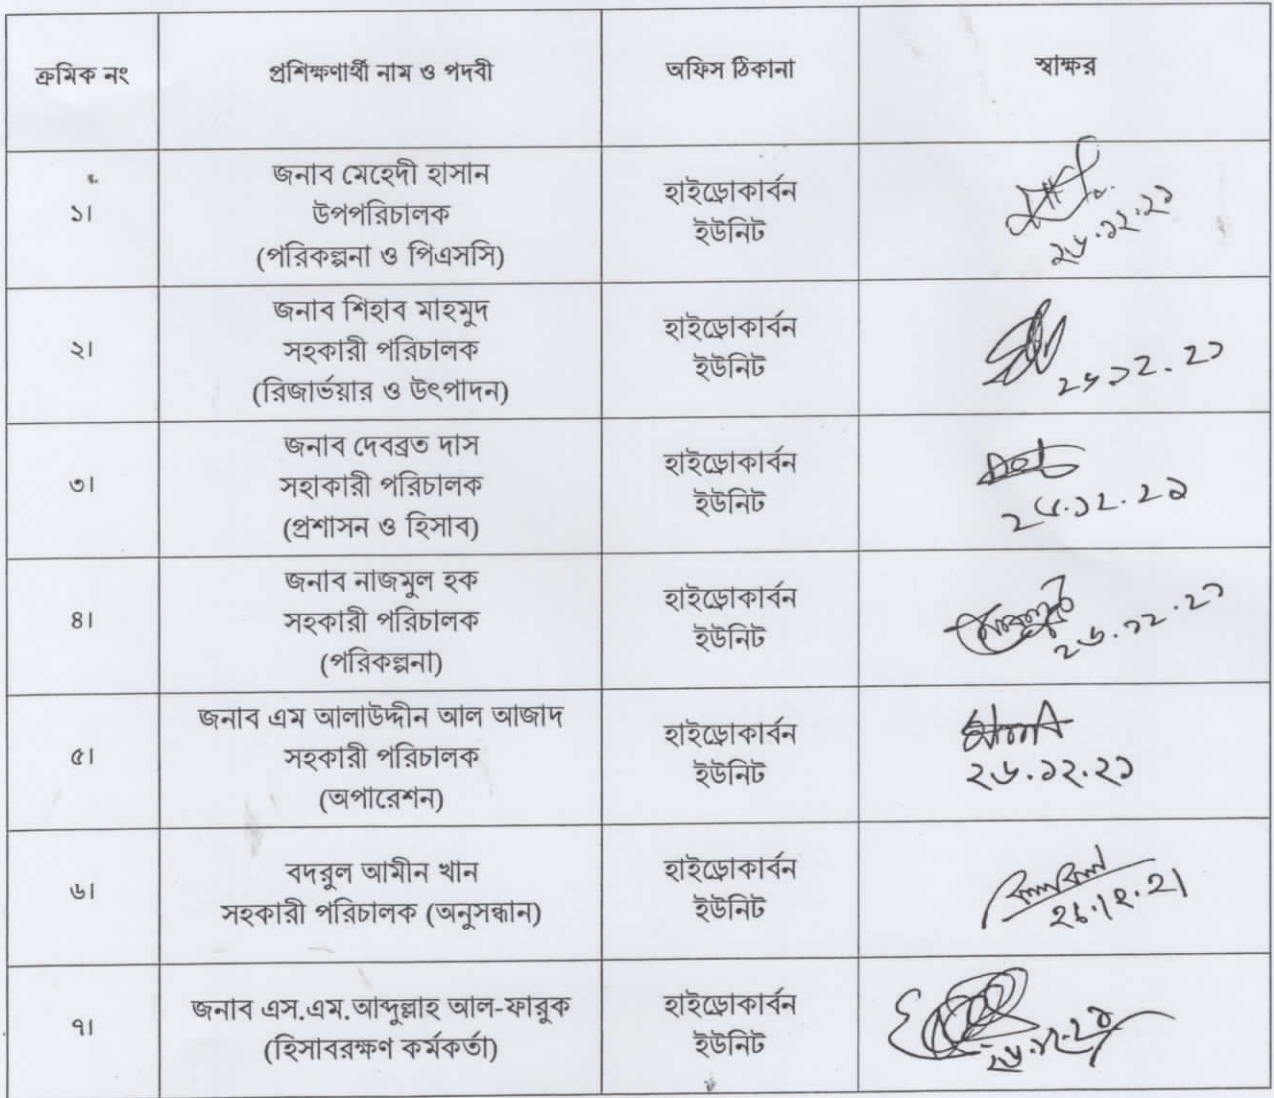 ক্রমিক নং
প্রশিক্ষণার্থী নাম ও পদবী
অফিস ঠিকানা
স্বাক্ষর
১।
জনাব মেহেদী হাসান
উপপরিচালক
(পরিকল্পনা ও পিএসসি)
হাইড্রোকার্বন
ইউনিট
২৬.১২.২১
২।
জনাব শিহাব মাহমুদ
সহকারী পরিচালক
(রিজার্ভয়ার ও উৎপাদন)
হাইড্রোকার্বন
ইউনিট
২৬.১২.২১
৩।
জনাব দেবব্রত দাস
সহাকারী পরিচালক
(প্রশাসন ও হিসাব)
হাইড্রোকার্বন
ইউনিট
২৬.১২.২১
৪।
জনাব নাজমুল হক
সহকারী পরিচালক
(পরিকল্পনা)
হাইড্রোকার্বন
ইউনিট
২৬.১২.২১
৫।
জনাব এম আলাউদ্দীন আল আজাদ
সহকারী পরিচালক
(অপারেশন)
হাইড্রোকার্বন
ইউনিট
২৬.১২.২১
৬।
বদরুল আমীন খান
সহকারী পরিচালক (অনুসন্ধান)
হাইড্রোকার্বন
ইউনিট
26.12.21
৭।
জনাব এস.এম.আব্দুল্লাহ আল-ফারুক
(হিসাবরক্ষণ কর্মকর্তা)
হাইড্রোকার্বন
ইউনিট
২৬.১২.২১